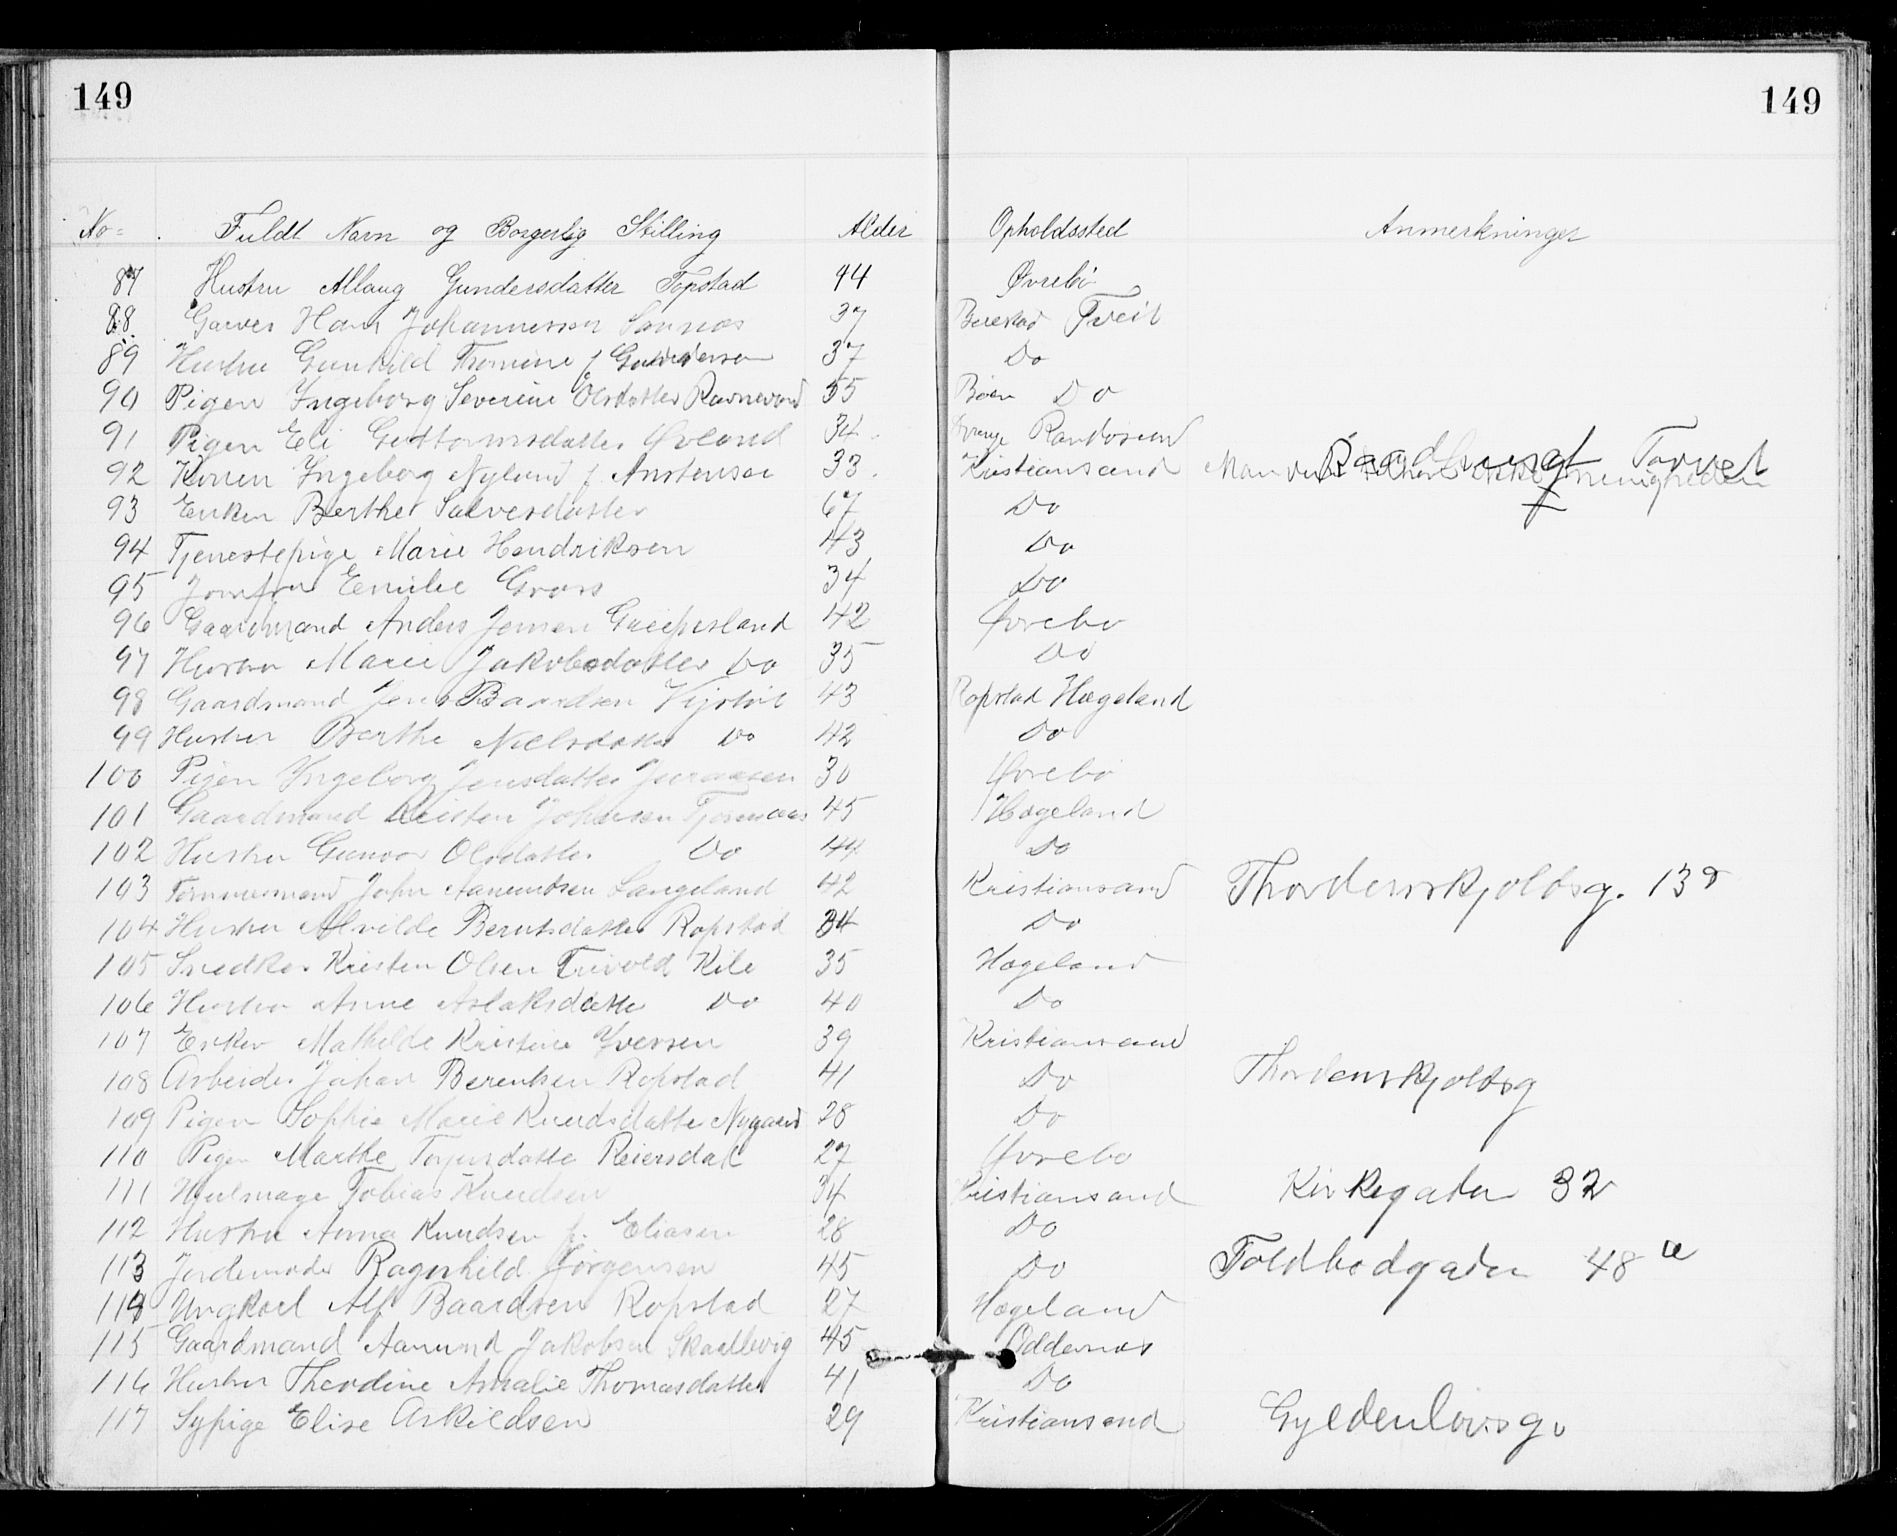 149 149
No= Fuldt Navn og Borgerlig Stilling Alder Opholdssted Anmerkninger
87 Hustru Allaug Gundersdatter Topstad 44 Øvrebö
88 Garver Hans Johannessen 37 Tveit
89 Hustru Gunhild Tomine f Gundersen 37 Do
90 Pigen Ingeborg Severine Olsdatter Ravnevand 55 Böen Do
91 Pigen Eli Guttormsdatter Øvland 34 Randösund
92 Konen Ingeborg Nyland f. Anstensen 33 Kristiansand Torvet
93 Enken Berthe Salvesdatter 67 Do
94 Tjenestepige Marie Hendriksen 43 Do
95 Jomfru Emilie Gross 34 Do
96 Gaardmand Anders Jensen Greipesland 42 Øvrebo
97 Hustru Marie Jakobsdatter Do 35 Do
98 Gaardmand Jens Baardsen 43 Ropstad Hægeland
99 Hustru Berthe Nielsdatter Do 42 Do
100 Pigen Ingeborg Jensdatter 30 Øvrebö
101 Gaardmand Kristen Johnsen 45 Hægeland
102 Hustru Gunvor Olsdatter Do 44 Do
103 Tømmermand John Aanundsen Langeland 42 Kristiansand Thordenskjoldsg. 13
104 Hustru Alvilde Berntsdatter Ropstad 34 Do
105 Snedker Kristen Olsen Kile 35 Hægeland
106 Hustru Anne Aslaksdatter Do 40 Do
107 Enken Mathilde Kristine Iversen 39 Kristiansand
108 Arbeider Johan Berentsen Ropstad 41 Do Thordenskjoldsg
109 Pigen Sophie Marie Knudsdatter Nygaard 28 Do
110 Pigen Marthe Torjusdatter Reiersdal 27 Øvrebo
111 Hjulmager Tobias Knudsen 34 Kristiansand Kirkegaten 32
112 Hustru Anna Knudsen f. Eliasen 28 Do
113 Jordemoder Ragnhild Jörgensen 45 Do Toldbodgaden 48
114 Ungkarl Alf Baardsen Ropstad 27 Hægeland
115 Gaardmand Aanund Jakobsen Skaallevig 45 Oddernes
116 Hustru Theodine Amalie Thomasdatter 41 Do
117 Sypige Elise Askildsen 29 Kristiansand Gyldenlövsg.